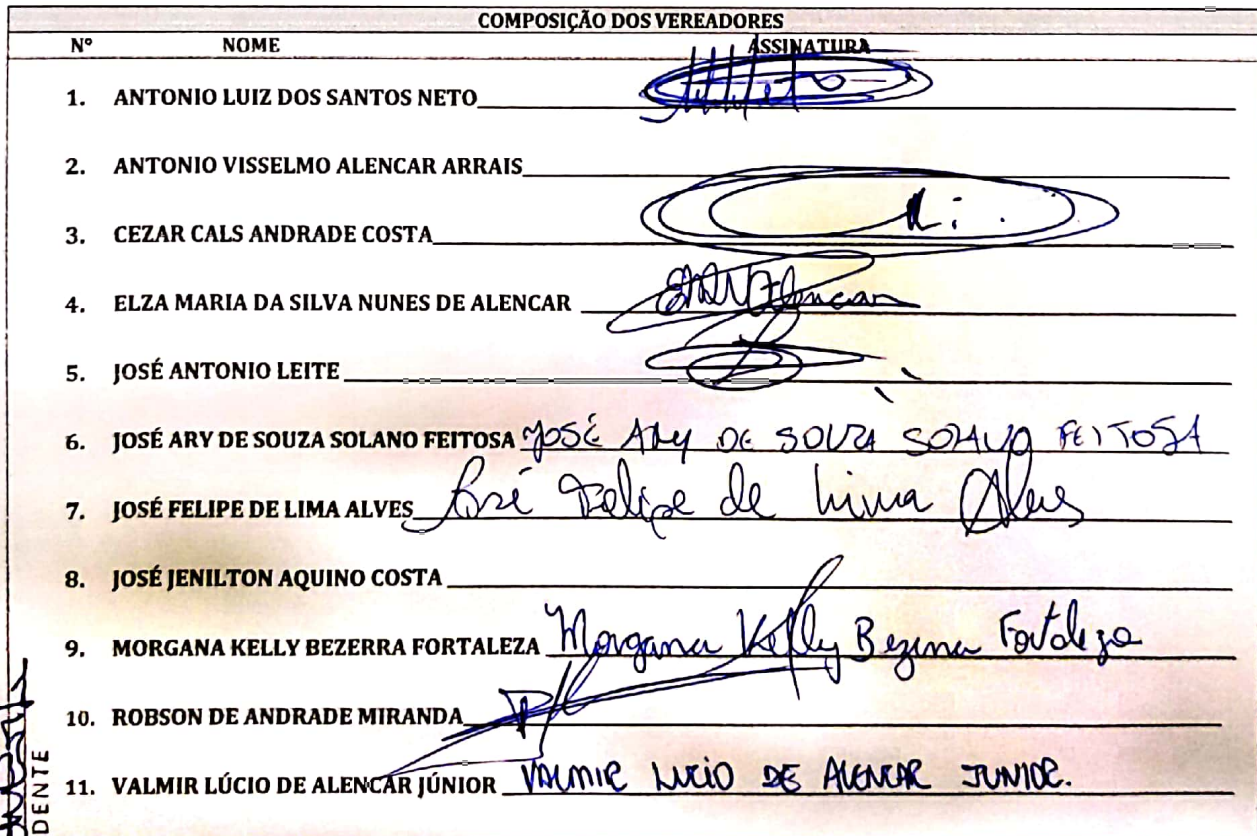 COMPOSIÇÃO DOS VEREADORES
Nº NOME ASSINATURA
1. ANTONIO LUIZ DOS SANTOS NETO
2. ANTONIO VISSELMO ALENCAR ARRAIS
3. CEZAR CALS ANDRADE COSTA
4. ELZA MARIA DA SILVA NUNES DE ALENCAR Alencar
5. JOSÉ ANTONIO LEITE
6. JOSÉ ARY DE SOUZA SOLANO FEITOSA JOSÉ ARY DE SOUZA SOLANO FEITOSA
7. JOSÉ FELIPE DE LIMA ALVES José Felipe de Lima Alves
8. JOSÉ JENILTON AQUINO COSTA
9. MORGANA KELLY BEZERRA FORTALEZA Morgana Kelly Bezerra Fortaleza
10. ROBSON DE ANDRADE MIRANDA
11. VALMIR LÚCIO DE ALENCAR JÚNIOR VALMIR LUCIO DE ALENCAR JUNIOR.
DENTE